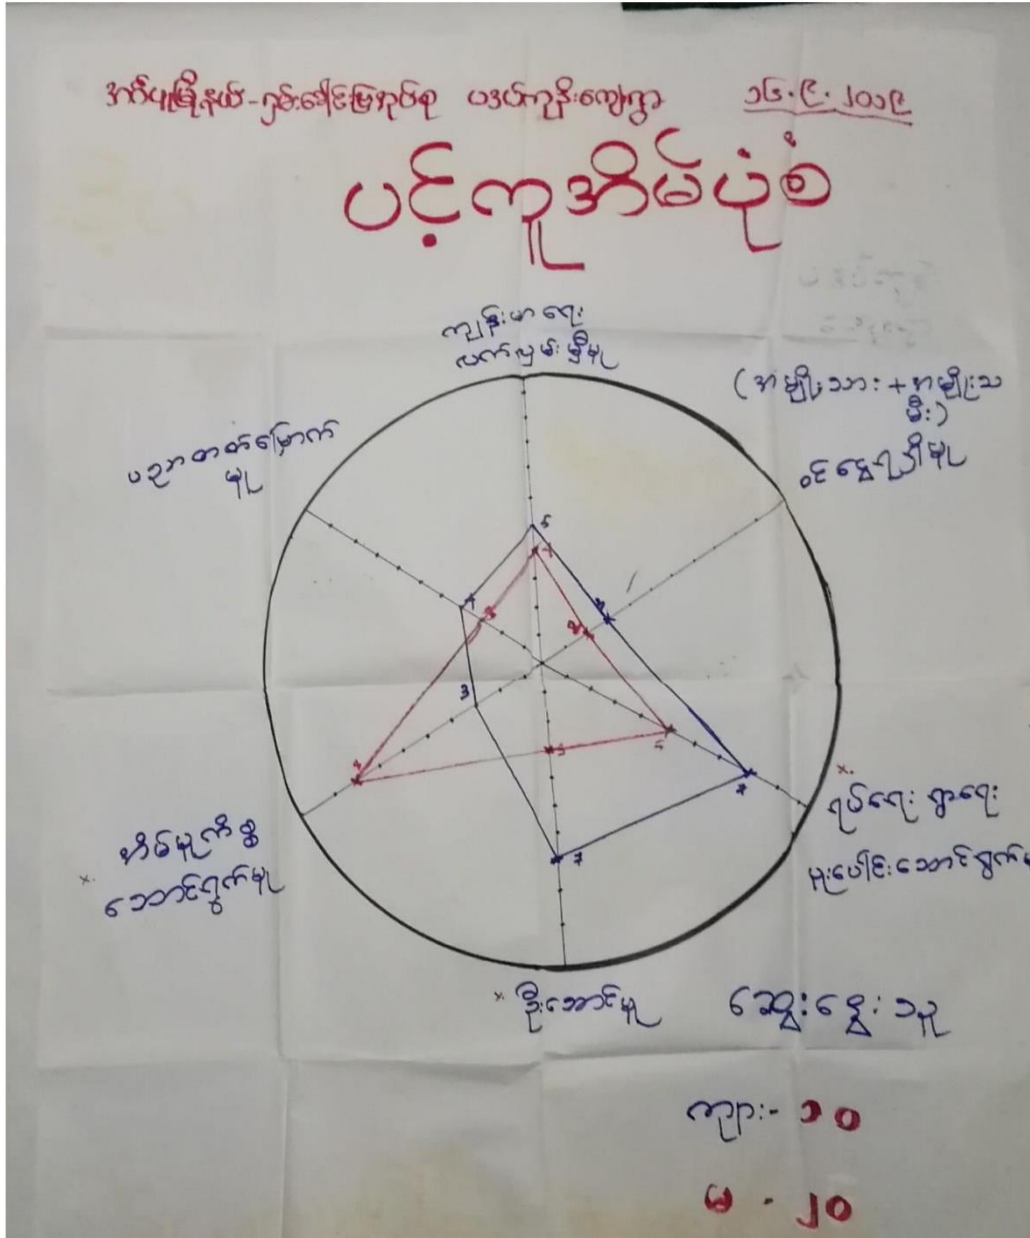 အင်္ဂပူမြို့နယ်-ရှမ်းခေါင်မြေအုပ်စု ပဒပ်ကုန်းကျေးရွာ ၁၆.၉.၂၀၁၉
ပင့်ကူအိမ်ပုံစံ
ကျန်းမာရေး
လက်လှမ်းမှီမှု
(အမျိုးသား+အမျိုးသ
မီး)
ဝင်ငွေရရှိမှု
ပညာတတ်မြောက်
မှု
5
4
3
2
5
4
3
3
7
7
7
x. ရပ်ရေး ရွာရေး
ပူးပေါင်းဆောင်ရွက်မှု
x. အိမ်မှုကိစ္စ
ဆောင်ရွက်မှု
x. ဦးဆောင်မှု
ဆွေးနွေးသူ
ကျား-၁၀
မ-၂၀